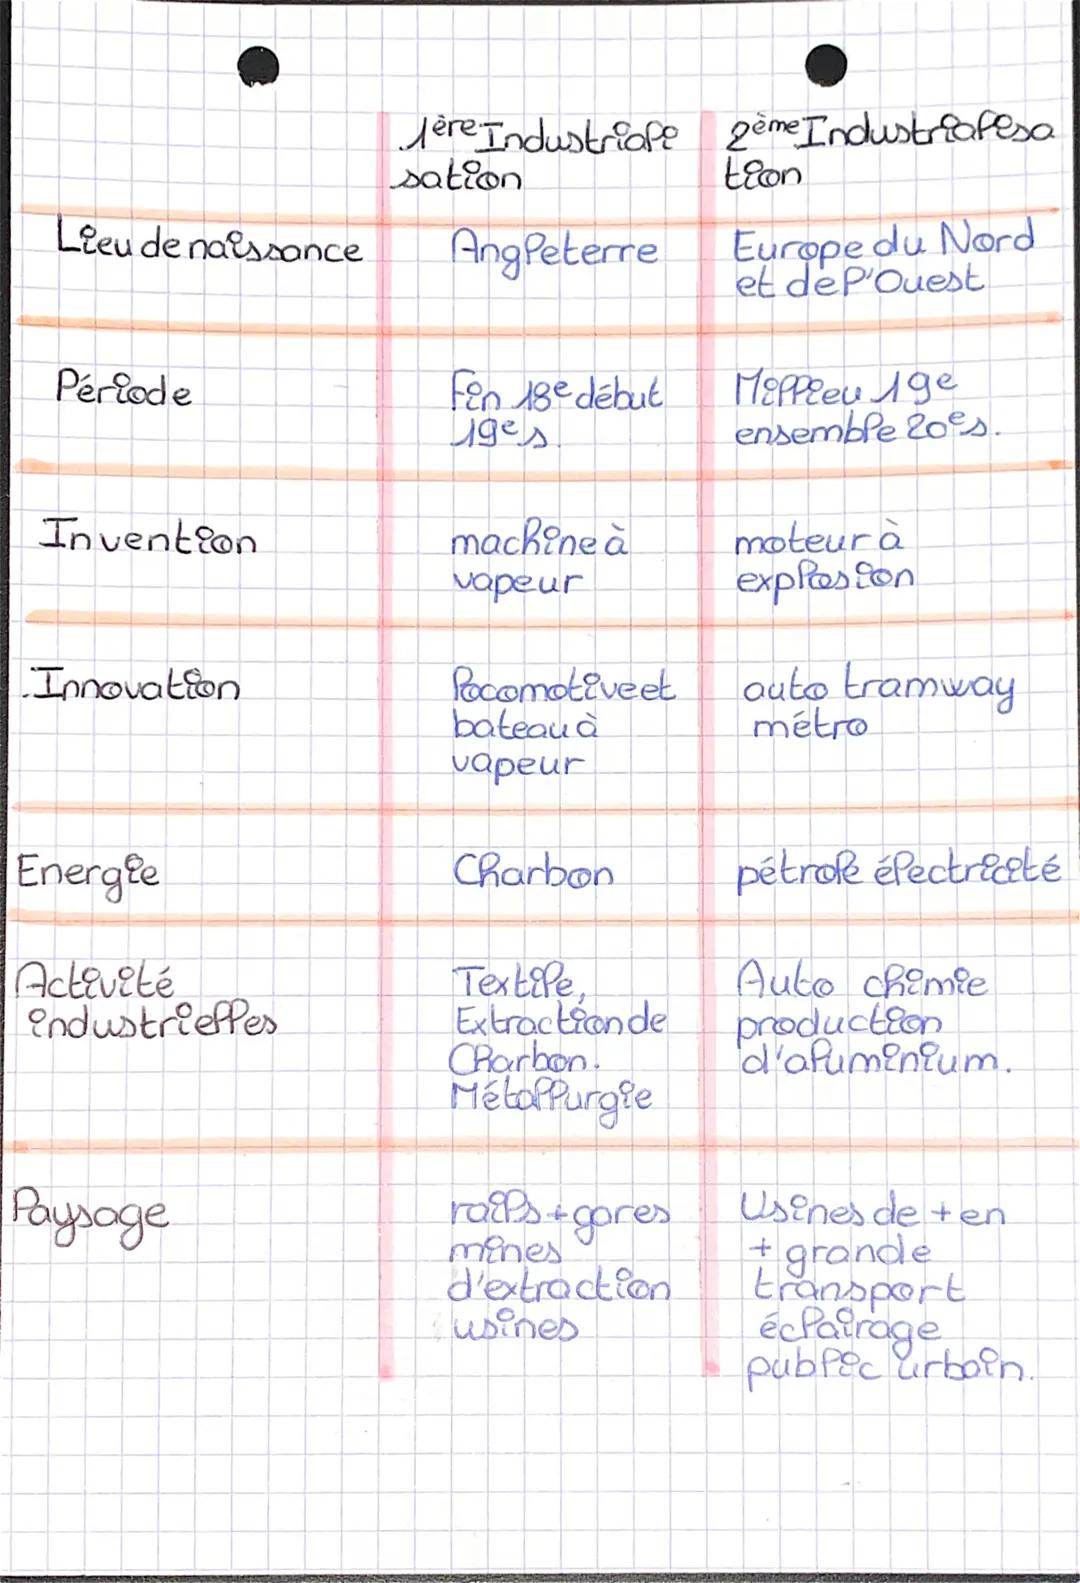 1ère Industriali
sation
2ème Industrialisa
tion
Lieu de naissance
Angleterre
Europe du Nord
et de l'Ouest
Période
Fin 18e début
19e s.
Millieu 19e
ensemble 20e s.
Invention
machine à
vapeur
moteur à
explosion
Innovation
locomotive et
bateau à
vapeur
auto tramway
métro
Energie
Charbon
pétrole électricité
Activité
industrielles
Textile,
Extraction de
Charbon.
Métallurgie
Auto chimie
production
d'aluminium.
Paysage
rails + gares
mines
d'extraction
usines
Usines de + en
+ grande
transport
éclairage
public urbain.